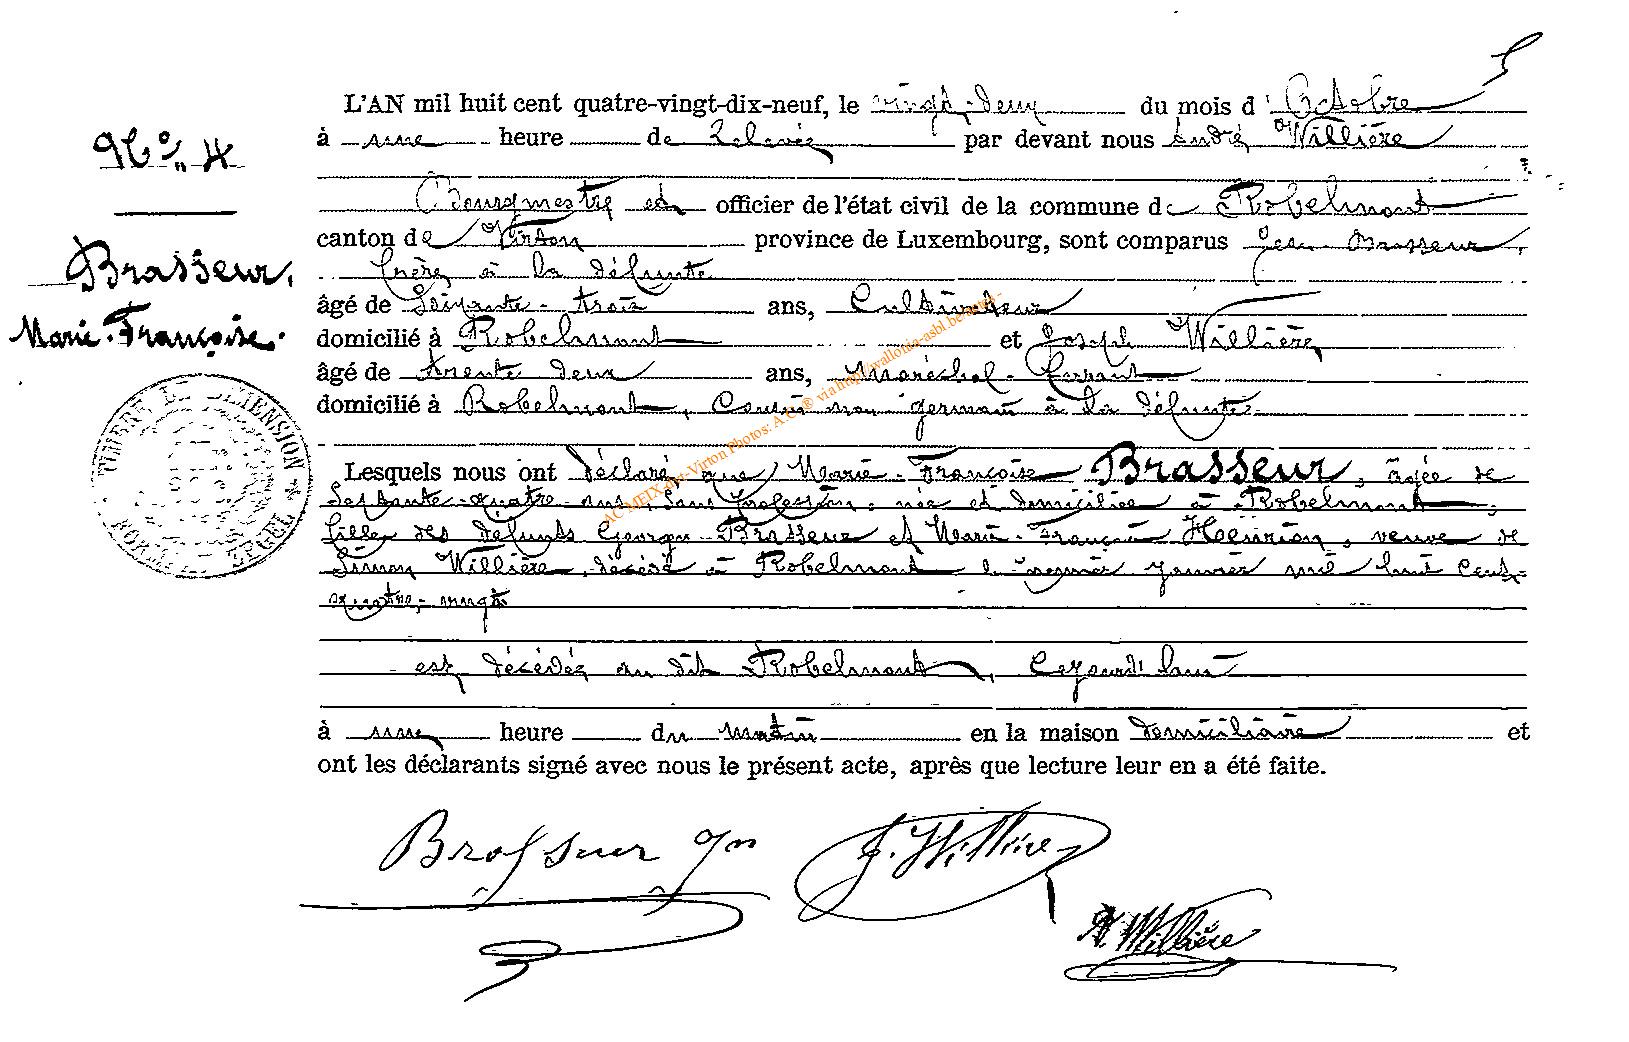 L'AN mil huit cent quatre-vingt-dix-neuf, le vingt-deux du mois d'Octobre
à une heure de relevée par devant nous André Willière
N° 4
Bourgmestre et officier de l'état civil de la commune de Robelmont
canton de Virton province de Luxembourg, sont comparus Jean Brasseur,
Brasseur,
frère à la défunte
âgé de Soixante-trois ans, Cultivateur
Marie-Françoise.
domicilié à Robelmont et Joseph Willière
âgé de trente deux ans, Maréchal-ferrant
domicilié à Robelmont, Cousin non germain à la défunte
TIMBRE DE DIMENSION
Lesquels nous ont déclaré que Marie-Françoise Brasseur, âgée de
Soixante-quatre ans, Sans profession, née et domiciliée à Robelmont,
fille des défunts Georges Brasseur et Marie-Françoise Henrion, veuve de
Simon Willière, décédé à Robelmont le janvier mil huit cent
quatre-vingt
est décédée au dit Robelmont, Cejourd'hui
à une heure du matin en la maison domiciliaire et
ont les déclarants signé avec nous le présent acte, après que lecture leur en a été faite.
Brasseur Jn J. Willière
A. Willière